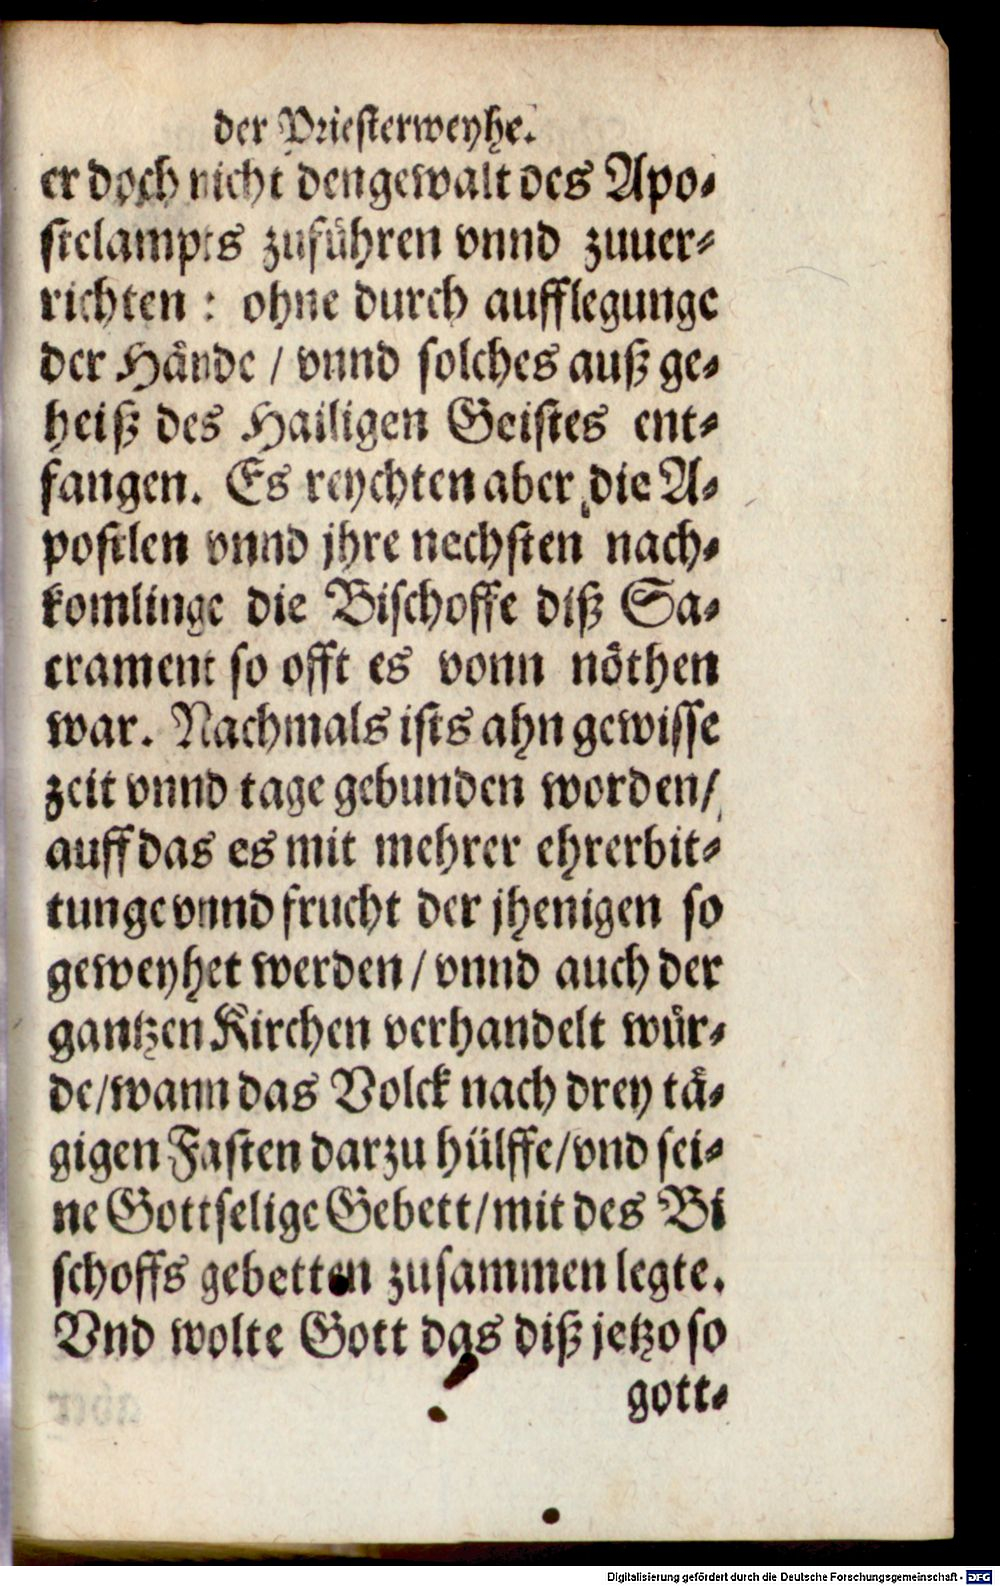 der Priesterweyhe.
er doch nicht den gewalt des Apo⸗
stelampts zuführen vnnd zuuer⸗
richten : ohne durch aufflegunge
der Hände / vnnd solches auß ge⸗
heiß des Hailigen Geistes ent⸗
fangen. Es reychten aber die A⸗
postlen vnnd jhre nechsten nach⸗
komlinge die Bischoffe diß Sa⸗
crament so offt es vonn nöthen
war. Nachmals ists ahn gewisse
zeit vnnd tage gebunden worden/
auff das es mit mehrer ehrerbit⸗
tunge vnnd frucht der jhenigen so
geweyhet werden / vnnd auch der
gantzen Kirchen verhandelt wür⸗
de/wann das Volck nach drey tä⸗
gigen Fasten darzu hülffe/vnd sei⸗
ne Gottselige Gebett/mit des Bi
schoffs gebetten zusammen legte.
Vnd wolte Gott das diß jetzo so
gott⸗
Digitalisierung gefördert durch die Deutsche Forschungsgemeinschaft - DFG